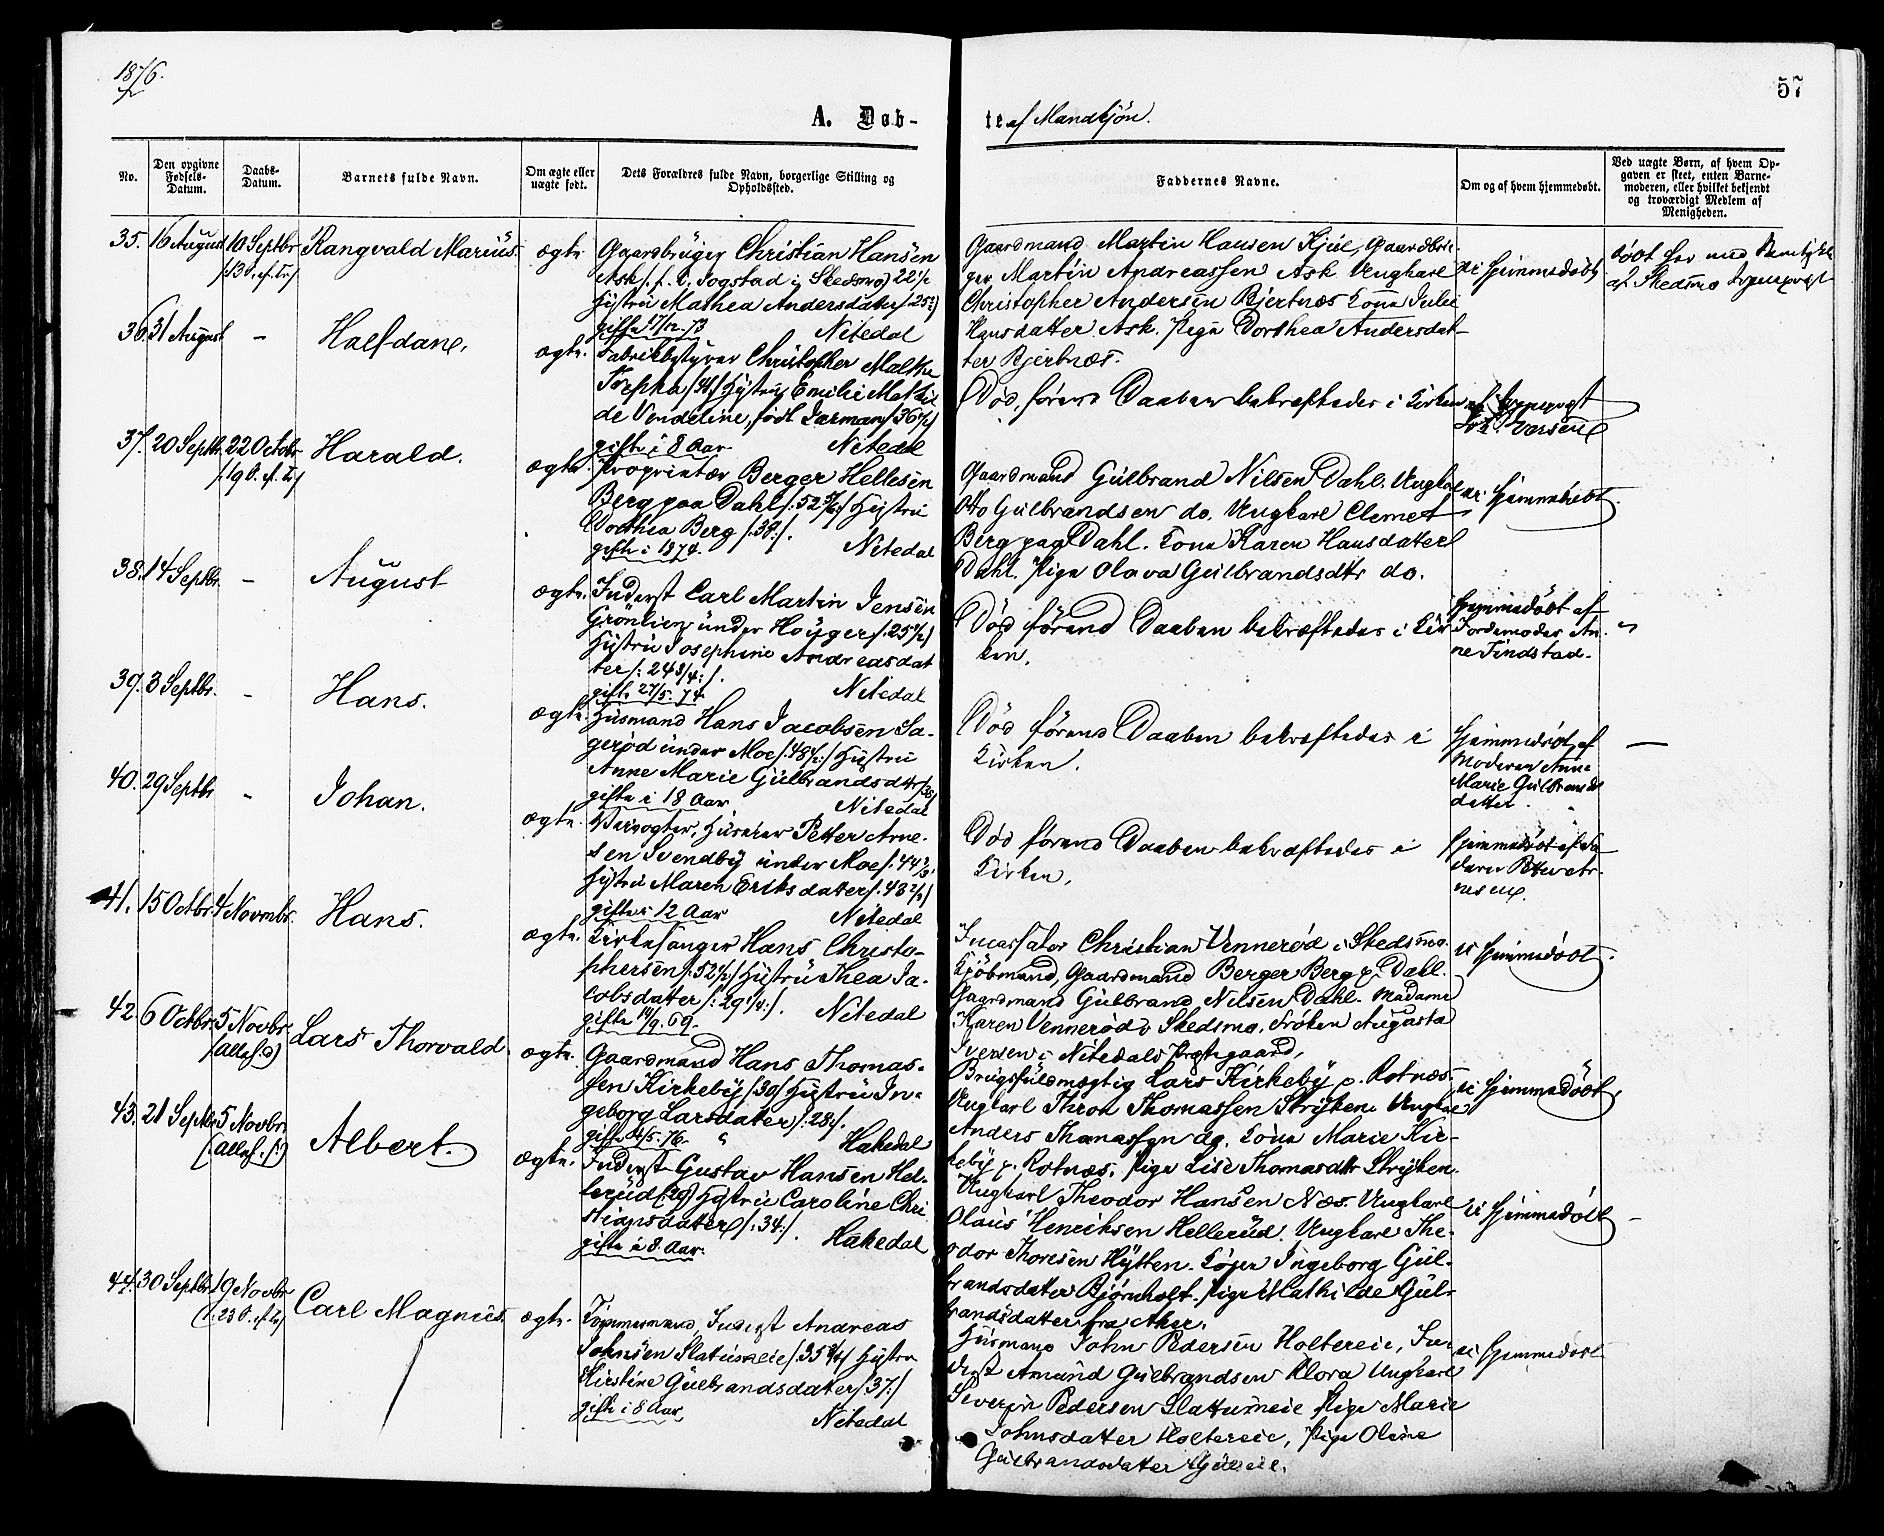 1876.
57
A. Døb-
te af Mandkjøn.
No.
Den opgivne Fødsels-Datum.
Daabs-Datum.
Barnets fulde Navn.
Om ægte eller uægte født.
Dets Forældres fulde Navn, borgerlige Stilling og Opholdssted.
Faddernes Navne.
Om og af hvem hjemmedøbt.
Ved uægte Børn, af hvem Opgaven er skeet, enten Barnemoderen, eller hvilket bekjendt og troværdigt Medlem af Menigheden.
35. 16 August 10 Septbr. Rangvald Marius. ægte
Gaardbruger Christian Hansen
Ask
Skedsmo 22 1/2
Hustru Mathea Andersdatter 25
gifte 17/12. 73 Nitedal
Gaardmand Martin Hansen Kjul, Gaardbru-
ger Martin Andreassen Ask Ungkarl
Christopher Andersen Bjertnæs Kone Julie
Hansdatter Ask. Pige Dorthea Andersdat-
ter Bjertnæs.
ei hjemmedøbt
døbt
af Skedsmo Sogneprest
36. 31 August - Halfdane, ægte.
Fabrikbestyrer Christopher Malthe
/34/ Hustru Emilie Mathil
de Vendeline, født /36
gifte i 8 Aar. Nitedal
Død, førend Daaben bekræftedes i Kirken
af Sogneprest
Iversen
37. 20 Septbr. 22 Octobr. (19 S. ef. Tr) Harald. ægte.
Proprietær Berger Hellesen
Berg paa Dahl /:52 Hustru
Dorthea Berg /:38:/.
gifte i 1874. Nitedal
Gaardmand Gulbrand Nilsen Dahl. Ungkarl
Otto Gulbrandsen do. Ungkarl Clemet
Berg paa Dahl. Kone Karen Hansdatter
Dahl. Pige Olava Gulbrandsdtr do.
ei hjemmedøbt.
38. 14 Septbr. - August ægte.
Inderst Carl Martin Jensen
Grönlien under Höyger /:25 1/2/
Hustru Josephine Andreasdat
ter /:24 3/4:/.
gifte 27/5. 74. Nitedal
Død førend Daaben bekræftedes i Kir
ken.
Hjemmedøbt af
Jordemoder An-
ne Tindstad.
39. 3 Septbr. - Hans. ægte.
Husmand Hans Jacobsen Sa-
gerød under Moe /:48 Hustru
Anne Marie Gulbrandsdtr /38/
gifte i 18 Aar. Nitedal
Død førend Daaben bekræftedes i
Kirken.
Hjemmedøbt af
Moderen Anne
Marie Gulbrands
datter.
40. 29 Septbr. - Johan. ægte.
Petter Arne-
sen Svendby under Moe /:44
Hustru Maren Eriksdatter /:43
gifte i 12 Aar Nitedal
Død førend Daaben bekræftedes i
Kirken.
Hjemmedøbt af Fa
deren Petter Ar-
nesen.
41. 15 Octbr. 4 Novmbr. Hans. ægte.
Kirkesanger Hans Christo-
phersen /:52 1/2/ Hustru Thea Ja-
cobsdatter /:29 1/4:/.
gifte 19/9. 69. Nitedal
Christian Vennerød i Skedsmo.
Kjøbmand, Gaardmand Berger Berg p. Dahl.
Gaardmand Gulbrand Nilsen Dahl. Madame
Karen Vennerød i Skedsmo, Frøken Augusta
Iversen i Nitedals Præstegaard,
ei hjemmedøbt.
42. 6 Octbr. 5 Novbr. (Allef. d) Lars Thorvald. ægte.
Gaardmand Hans Thomas-
sen Kirkeby /:30/ Hustru In-
geborg Larsdatter /:28/.
gifte 76. Hakedal
Brugsfuldmægtig Lars Kirkeby p. Rotnæs.
Ungkarl Thron Thomassen Stryken. Ungkarl
Anders Thomassen do. Kone Marie Kir-
keby p. Rotnæs. Pige Lise Thomasdtr Stryken.
ei hjemmedøbt.
43. 21 Septbr. 5 Novbr. (Allef. d) Albert. ægte.
Inderst Gustav Hansen Hel-
lerud /29/ Hustru Caroline Chri
stiansdatter /:34:/.
gifte i 8 Aar. Hakedal
Ungkarl Theodor Hansen Næs. Ungkarl
Olaus Henriksen Hellerud. Ungkarl The-
odor Thoresen Hytten. Ingeborg Gul-
brandsdatter Bjørnholt. Pige Mathilde Gul-
brandsdatter fra Aker.
ei hjemmedøbt
44. 30 Septbr. 19 Novbr. (23 S. ef. Tr) Carl Magnus. ægte.
Tømmermand, Inderst Andreas
Johnsen Slatumeie /:35 Hustru
Kirstine Gulbrandsdatter /37:/
gifte i 8 Aar. Nitedal
Husmand John Pedersen Holtereie, In-
derst Amund Gulbrandsen Klora Ungkarl
Severin Pedersen Slattumeie Pige Marie
Johnsdatter Holtereie, Pige Oline
Gulbrandsdatter
ei hjemmedøbt